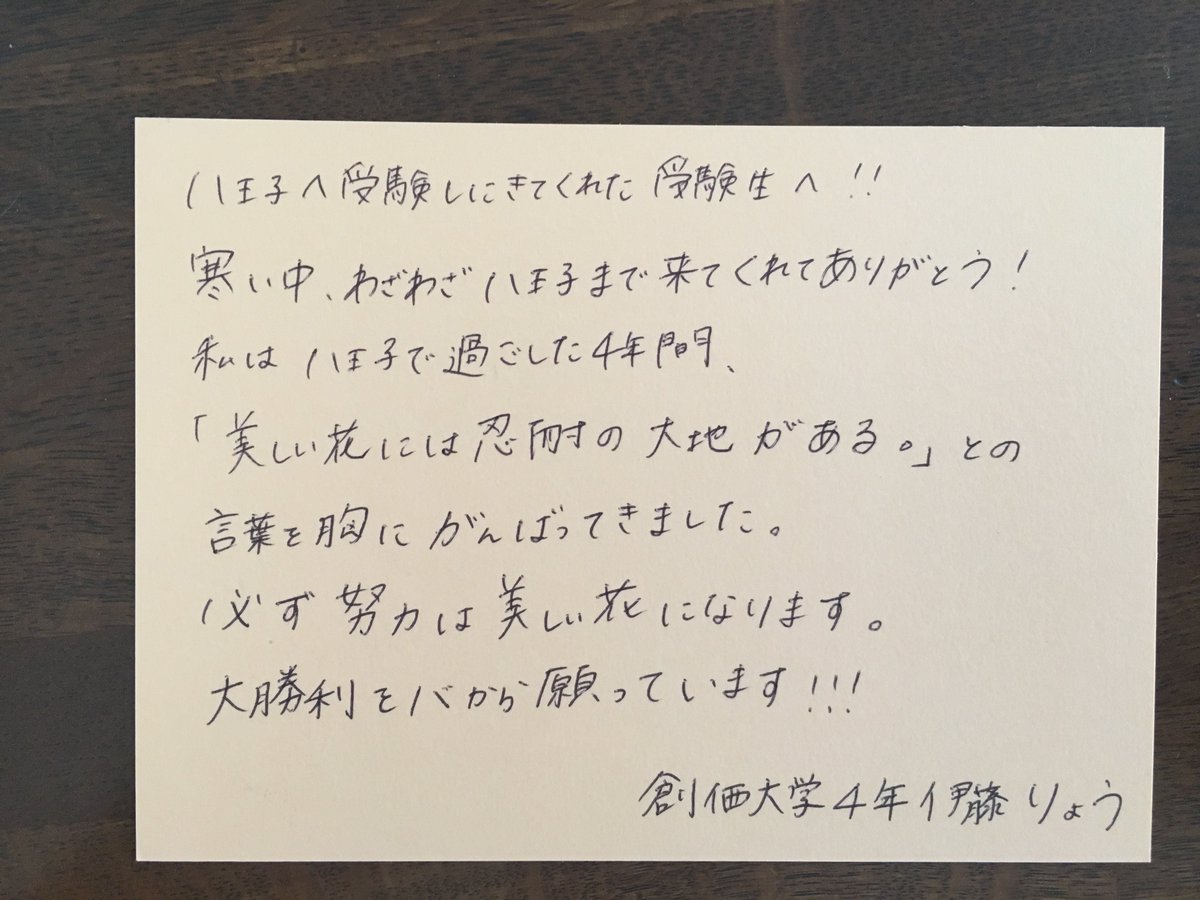 八王子へ受験しにきてくれた 受験生へ!!
寒い中、わざわざ八王子まで来てくれてありがとう!
私は八王子で過ごした4年間、
「美しい花には忍耐の大地がある。」との
言葉を胸にがんばってきました。
必ず努力は美しい花になります。
大勝利を心から願っています!!!
創価大学4年 伊藤りょう